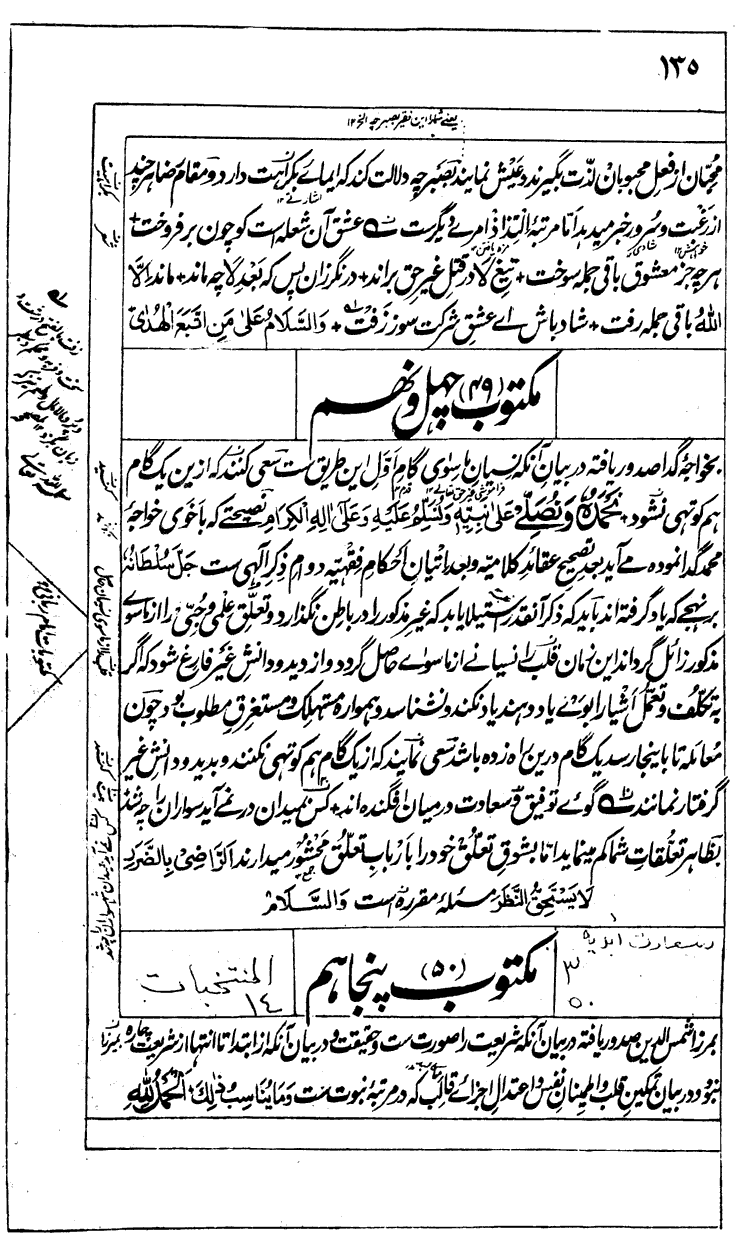 ١٣٥
محبان از فعل محبوبان لذت بگیرند و عیش نمایند بصبر چه دلالت کند که ایمائے بکراہت دارد و مقام رضا ہر چند
از رغبت و سرور خبر میدہد اما مرتبۂ التذاذ امرے دیگرست ؎ عشق آن شعلہ است کو چون بر فروخت +
ہر چہ جز معشوق باقی جملہ سوخت + تیغ لا در قتل غیر حق براند + در نگر زان پس کہ بعد لا چہ ماند + ماند الا
اللہ باقی جملہ رفت + شاد باش اے عشق شرکت سوز زفت ؎ والسلام علی من اتبع الھدی
مکتوب (۴۹) چہل و نہم
بخواجہ گدا صدور یافتہ در بیان آنکہ نسیان ماسوی گام اول این طریق ست سعی کنند کہ ازین یک گام
ہم کوتہی نشود + نحمدہ ونصلے علی نبیہ ونسلم علیہ وعلی الہ الکرام نصیحتے کہ باخوی خواجہ
محمد گدا نمودہ مے آید بعد تصحیح عقائد کلامیہ و بعد اتیان احکام فقہیہ دوام ذکر الہی ست جل سلطانہ
بر نہجے کہ یاد گرفتہ اند باید کہ ذکر آنقدر استیلا یابد کہ غیر مذکور را در باطن نگذارد و تعلق علمی و حبی را از ماسواے
مذکور زائل گرداند این زمان قلب را نسیانے از ماسواے حاصل گردد و از دید و دانش غیر فارغ شود کہ اگر
بہ تکلف و تعمل اشیا را بوے یاد دہند یاد نکند و نشناسد و ہموارہ مستہلک و مستغرق مطلوب بود چون
معاملہ تا باینجا رسد یک گام درین راہ زدہ باشد سعی نمایند کہ از یک گام ہم کوتہی نکنند و بدید و دانش غیر
گرفتار نمانند ؎ گوے توفیق و سعادت در میان افگندہ اند + کس بمیدان در نمے آید سواران را چہ شد
بظاہر تعلقات شما کم مینماید اما بشوق تعلق خود را بارباب تعلق محشور میدارند الراضی بالضرر
لا یستحق النظر مسئلہ مقررہ است والسلام
سعادت ابدیہ
٣
٥٠
مکتوب (۵۰) پنجاہم
المنتخبات
١٤
بمرزا شمس الدین صدور یافتہ در بیان آنکہ شریعت را صورت ست و حقیقت و در بیان آنکہ از ابتدا تا انتہا از شریعت چارہ
نبود و در بیان تمکین قلب و اطمینان نفس و اعتدال اجزائے قالب کہ در مرتبۂ نبوت ست وما یناسب ذلک الحمد للہ